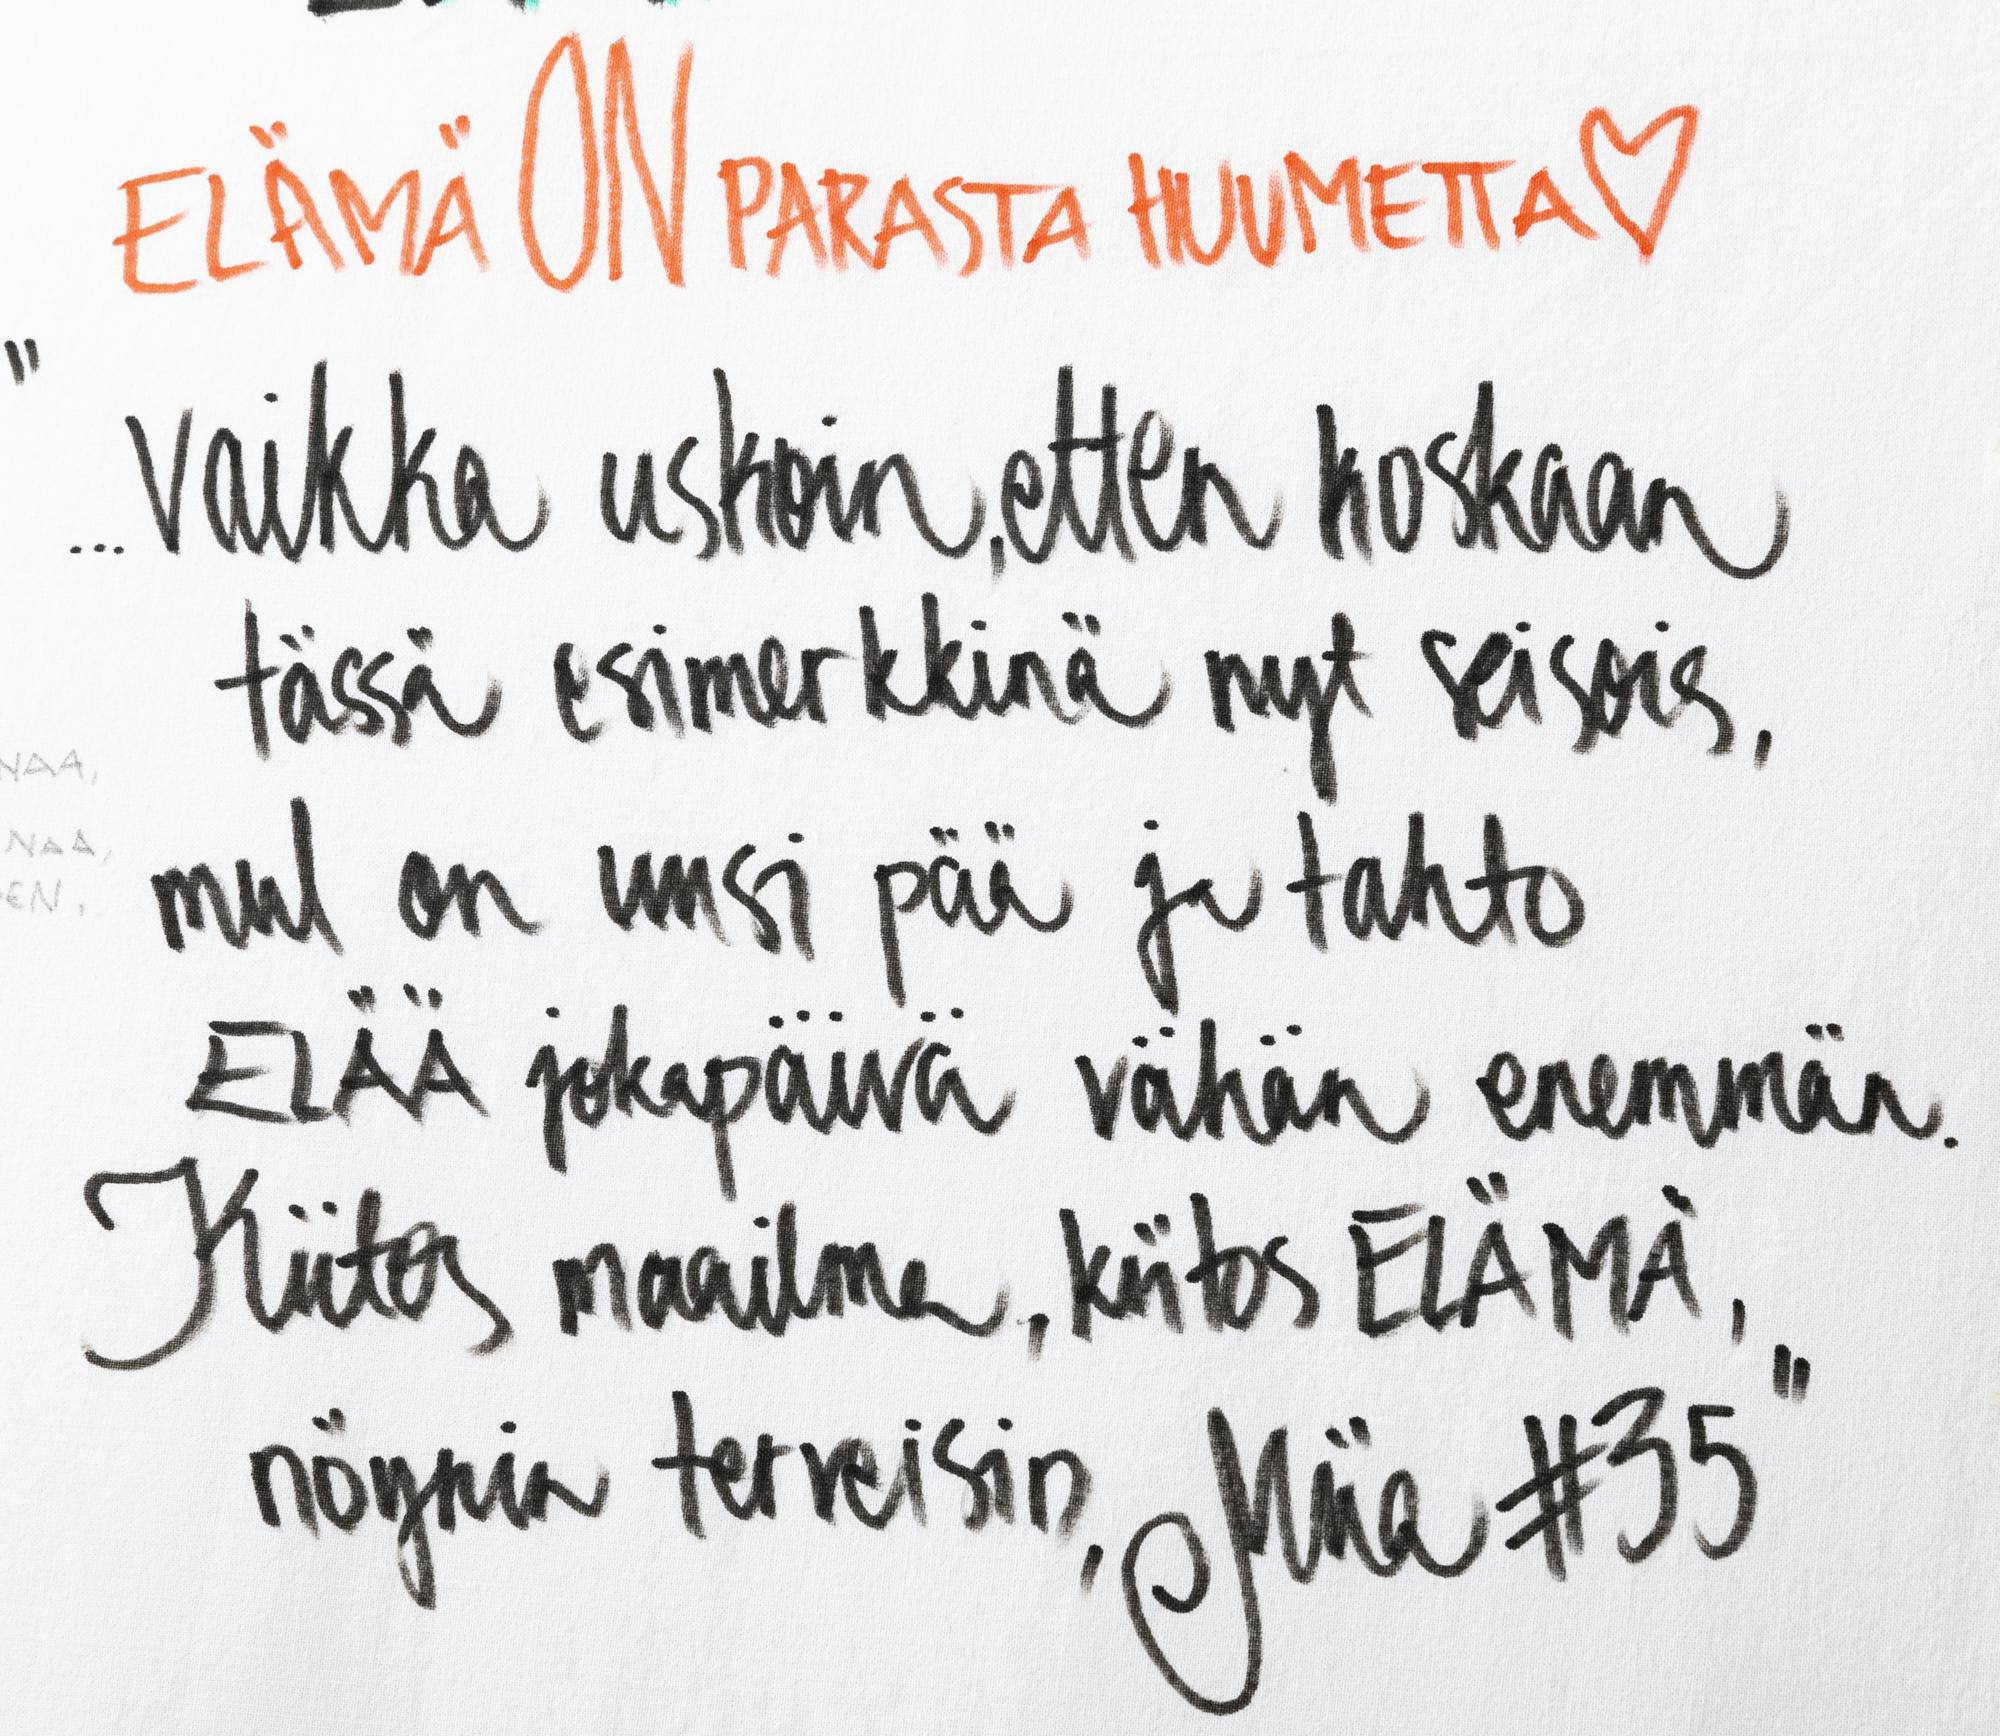 ELÄMÄ ON PARASTA HUUMETTA♡
"
...vaikka uskoin, etten koskaan
tässä esimerkkinä nyt seisois,
NAA,
mul on uusi pää ja tahto
NAA,
EN,
ELÄÄ jokapäivä vähän enemmän.
Kiitos maailma, kiitos ELÄMÄ,
nöyrin terveisin, Miia #35"